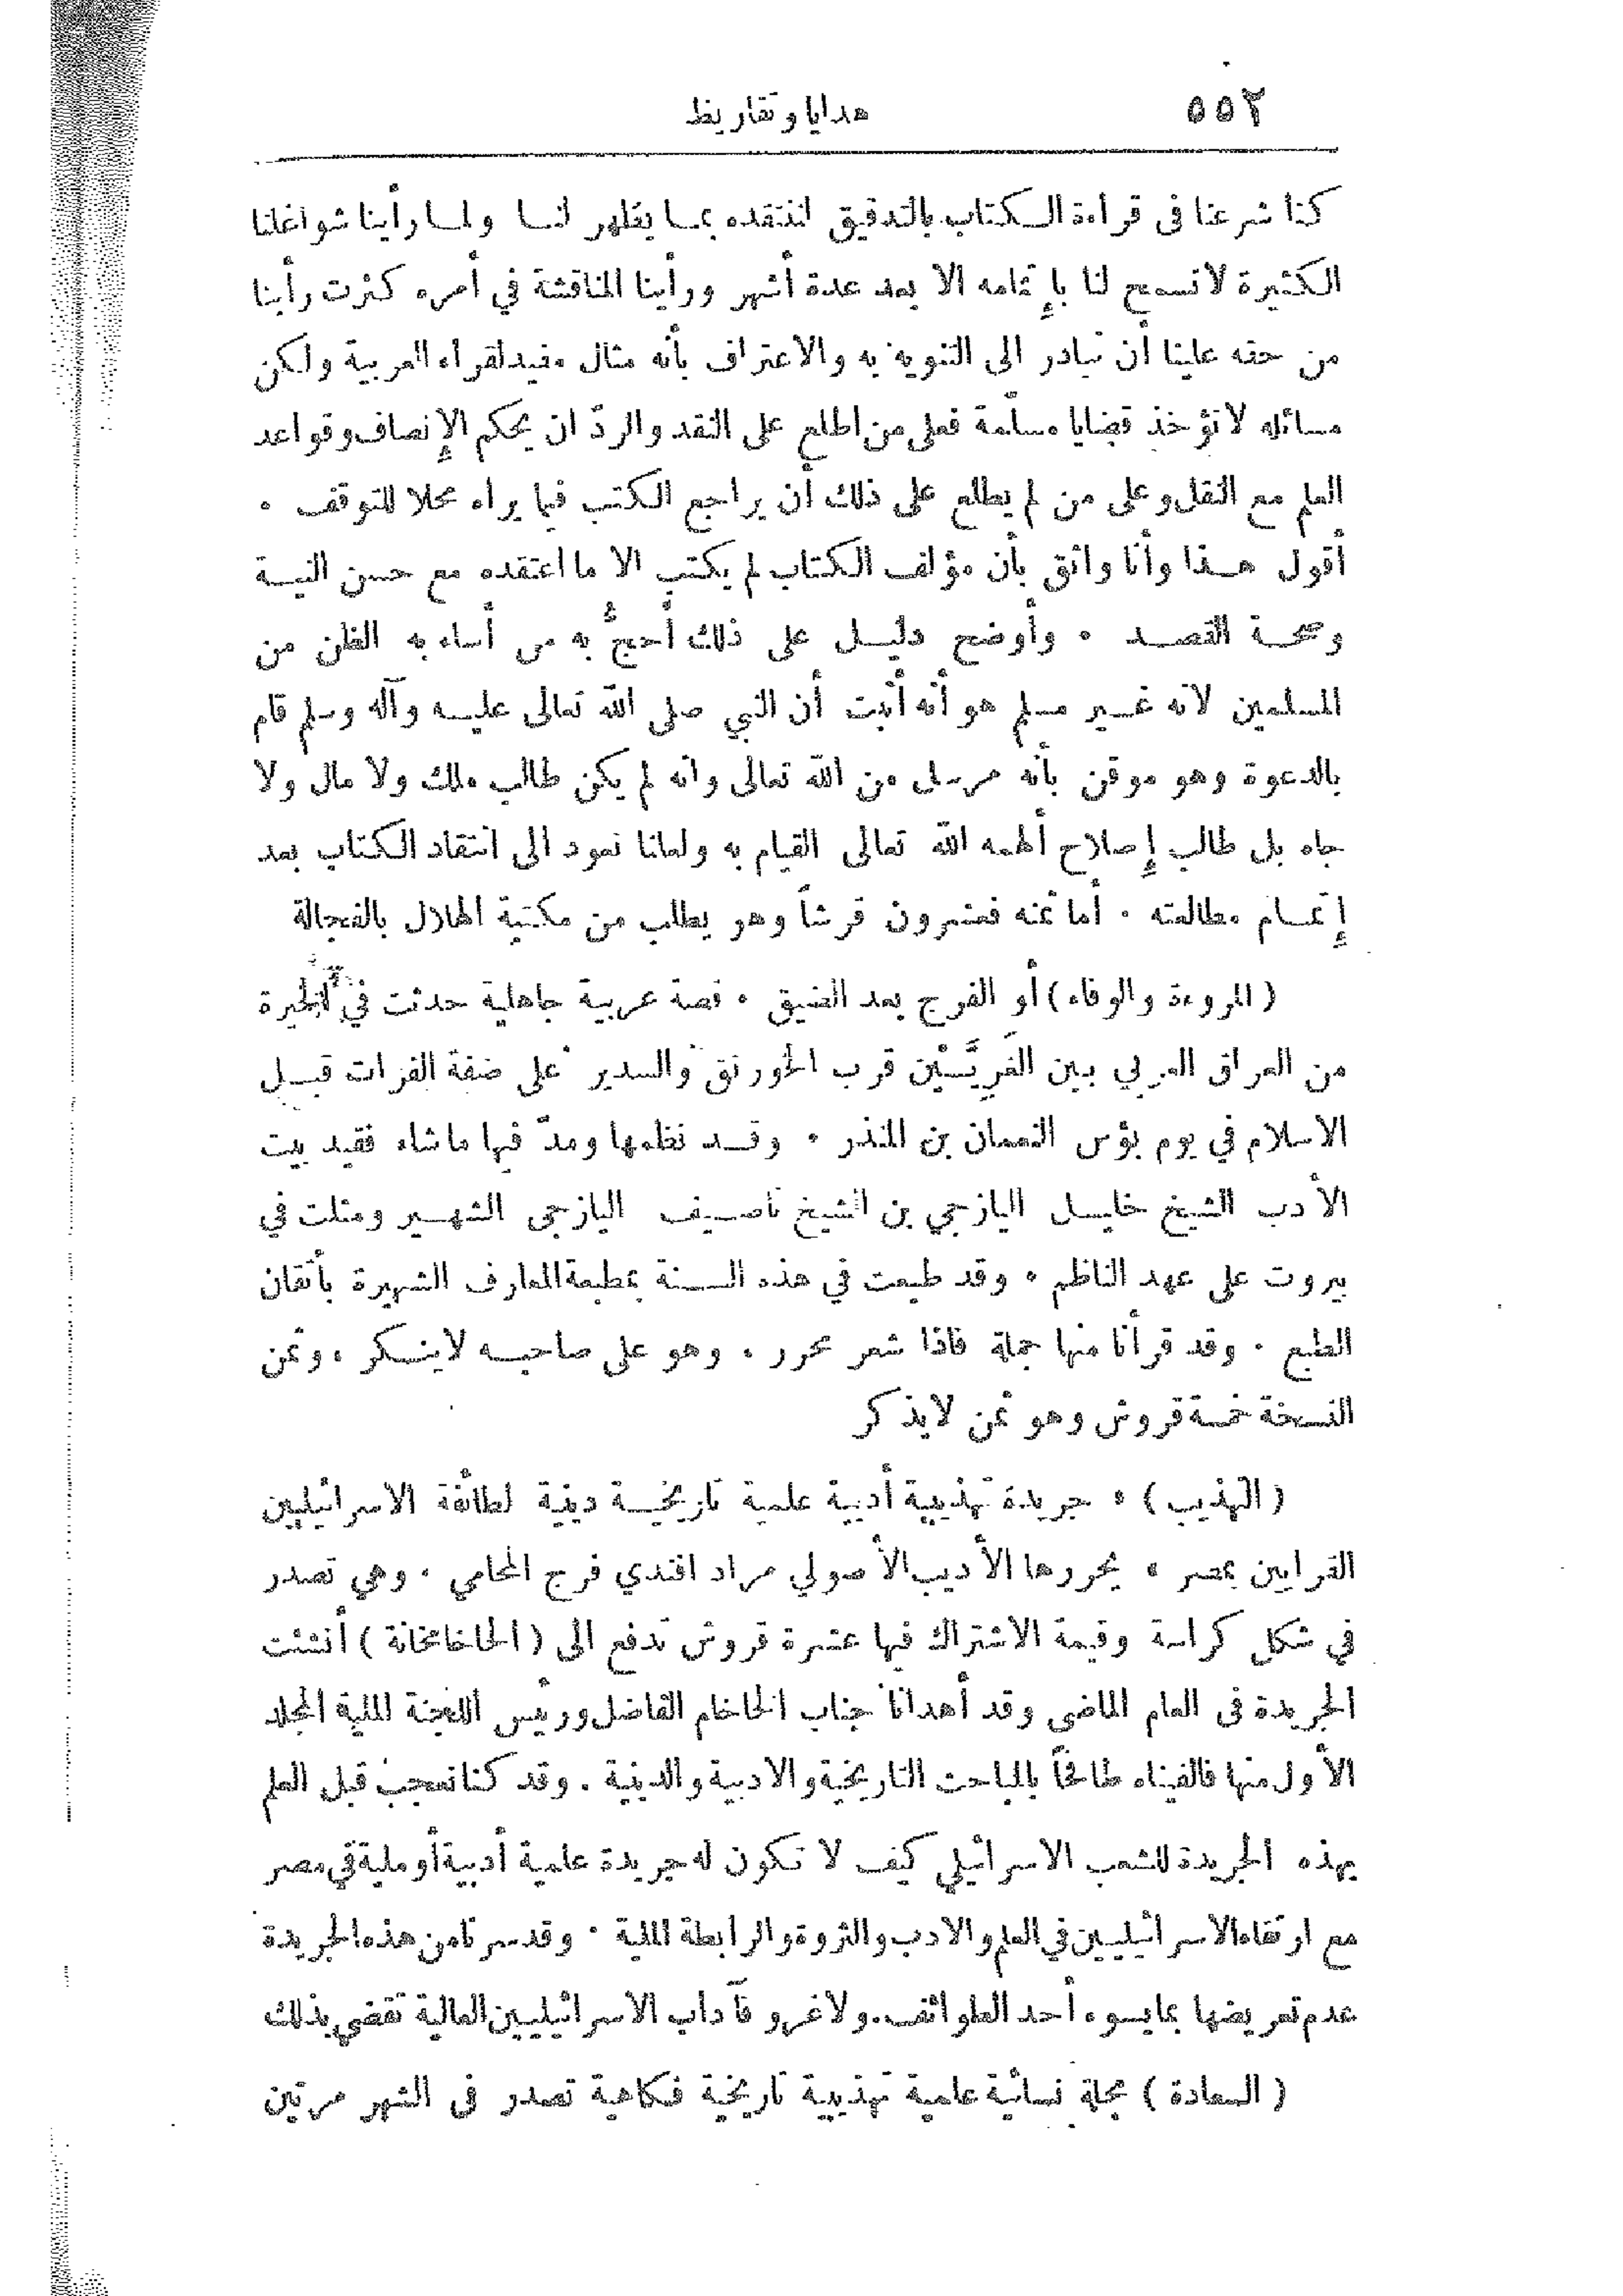 ٥٥٢ هدايا وتقاريظ
كنا شرعنا فى قراءة الكتاب بالتدقيق لننتقده بما يظهر لنا ولما رأينا شواغلنا
الكثيرة لا تسمح لنا بإتمامه الا بعد عدة أشهر ورأينا المناقشة في أمره كثرت رأينا
من حقه علينا أن نبادر الى التنويه به والاعتراف بأنه مثال مفيد لقراء العربية ولكن
مسائله لا تؤخذ قضايا مسلّمة فعلى من اطلع على النقد والردّ ان يحكم الإنصاف وقواعد
العلم مع النقل وعلى من لم يطلع على ذلك أن يراجع الكتب فيما يراه محلا للتوقف .
أقول هذا وأنا واثق بأن مؤلف الكتاب لم يكتب الا ما اعتقده مع حسن النية
وصحة القصد . وأوضح دليل على ذلك أحجُّ به من أساء به الظن من
المسلمين لانه غير مسلم هو أنه أثبت أن النبي صلى الله تعالى عليه وآله وسلم قام
بالدعوة وهو موقن بأنه مرسل من الله تعالى وانه لم يكن طالب ملك ولا مال ولا
جاه بل طالب إصلاح ألهمه الله تعالى القيام به ولعلنا نعود الى انتقاد الكتاب بعد
إتمام مطالعته . أما ثمنه فعشرون قرشاً وهو يطلب من مكتبة الهلال بالفجالة
( المروءة والوفاء ) أو الفرج بعد الضيق . قصة عربية جاهلية حدثت في الحيرة
من العراق العربي بين الغَرِيَّيْن قرب الخورنق والسدير على ضفة الفرات قبل
الاسلام في يوم بؤس النعمان بن المنذر . وقد نظمها ومدّ فيها ما شاء فقيد بيت
الأدب الشيخ خليل اليازجي بن الشيخ ناصيف اليازجى الشهير ومثلت في
بيروت على عهد الناظم . وقد طبعت في هذه السنة بمطبعة المعارف الشهيرة بأتقان
الطبع . وقد قرأنا منها جملة فاذا شعر محرر . وهو على صاحبه لا ينكر . وثمن
النسخة خمسة قروش وهو ثمن لا يذكر
( التهذيب ) . جريدة تهذيبية أدبية علمية تاريخية دينية لطائفة الاسرائيليين
القرايين بمصر . يحررها الأديب الأصولي مراد افندي فرج المحامي . وهي تصدر
في شكل كراسة وقيمة الاشتراك فيها عشرة قروش تدفع الى ( الحاخامخانة ) أنشئت
الجريدة فى العام الماضى وقد أهدانا جناب الحاخام الفاضل ورئيس اللجنة الملية المجلد
الأول منها فالفيناه طافحاً بالمباحث التاريخية والادبية والدينية . وقد كنا نعجب قبل العلم
بهذه الجريدة للشعب الاسرائيلي كيف لا تكون له جريدة علمية أدبية أو ملية في مصر
مع ارتقاء الاسرائيليين في العلم والادب والثروة والرابطة الملية . وقد سرنا من هذه الجريدة
عدم تعريضها بما يسوء أحد الطوائف . ولا غرو فآداب الاسرائيليين العالية تقضي بذلك
( السعادة ) مجلة نسائية علمية تهذيبية تاريخية فكاهية تصدر فى الشهر مرتين